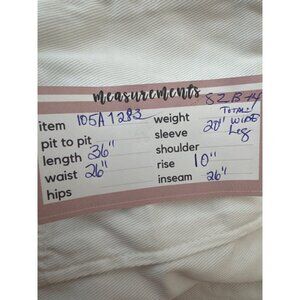 measurements
82B #4
item 105A1283 weight TOTAL:
pit to pit sleeve 20" WIDE
length 36" shoulder Leg
waist 26" rise 10"
hips inseam 26"